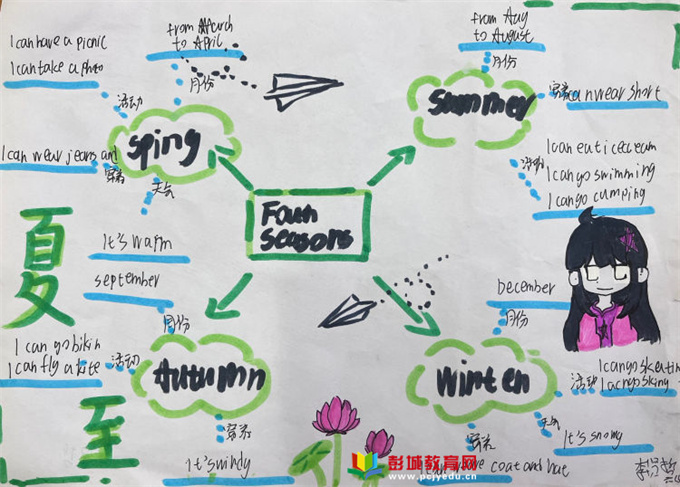 I can have a picnic
I can take a photo
活动
from March
to April
月份
sping
I can wear jeans and
穿着
天气
It's warm
from
to August
月份
summer
穿着
an wear short
活动
I can eat icecream
I can go swimming
I can go cumping
Foun
seasons
夏
至
september
月份
I can go bikin
I can fly a kite
活动
Autumn
穿着
It's windy
December
月份
winten
活动
I can go skeatin
天气
It's snowy
穿着
coat and hat
彭城教育网
www.pcjyedu.cn